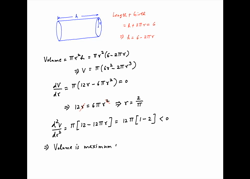 h
Length + Girth
= h + 2πr = 6
⇒ h = 6 - 2πr
Volume = πr²h = πr²(6 - 2πr)
⇒ V = π(6r² - 2πr³)
dV/dr = π(12r - 6πr²) = 0
⇒ 12r = 6πr² ⇒ r = 2/π
d²V/dr² = π[12 - 12πr] = 12π[1 - 2] < 0
⇒ Volume is maximum